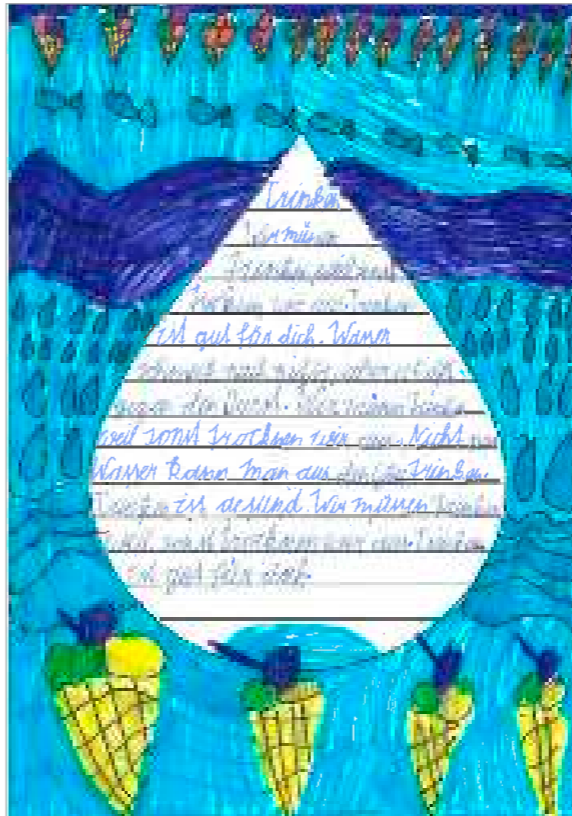 Trinken
Wir müssen
Trinken, weil sonst
trocknen wir aus. Trinken
ist gut für dich. Wasser
schmeckt nach nichts, aber es hilft
gegen den Durst. Wir müssen trinken
weil sonst trocknen wir aus. Nicht nur
Wasser kann man aus der Trinken.
Trinken ist gesund. Wir müssen trinken
weil sonst trocknen wir aus. Trinken
ist gut für dich.